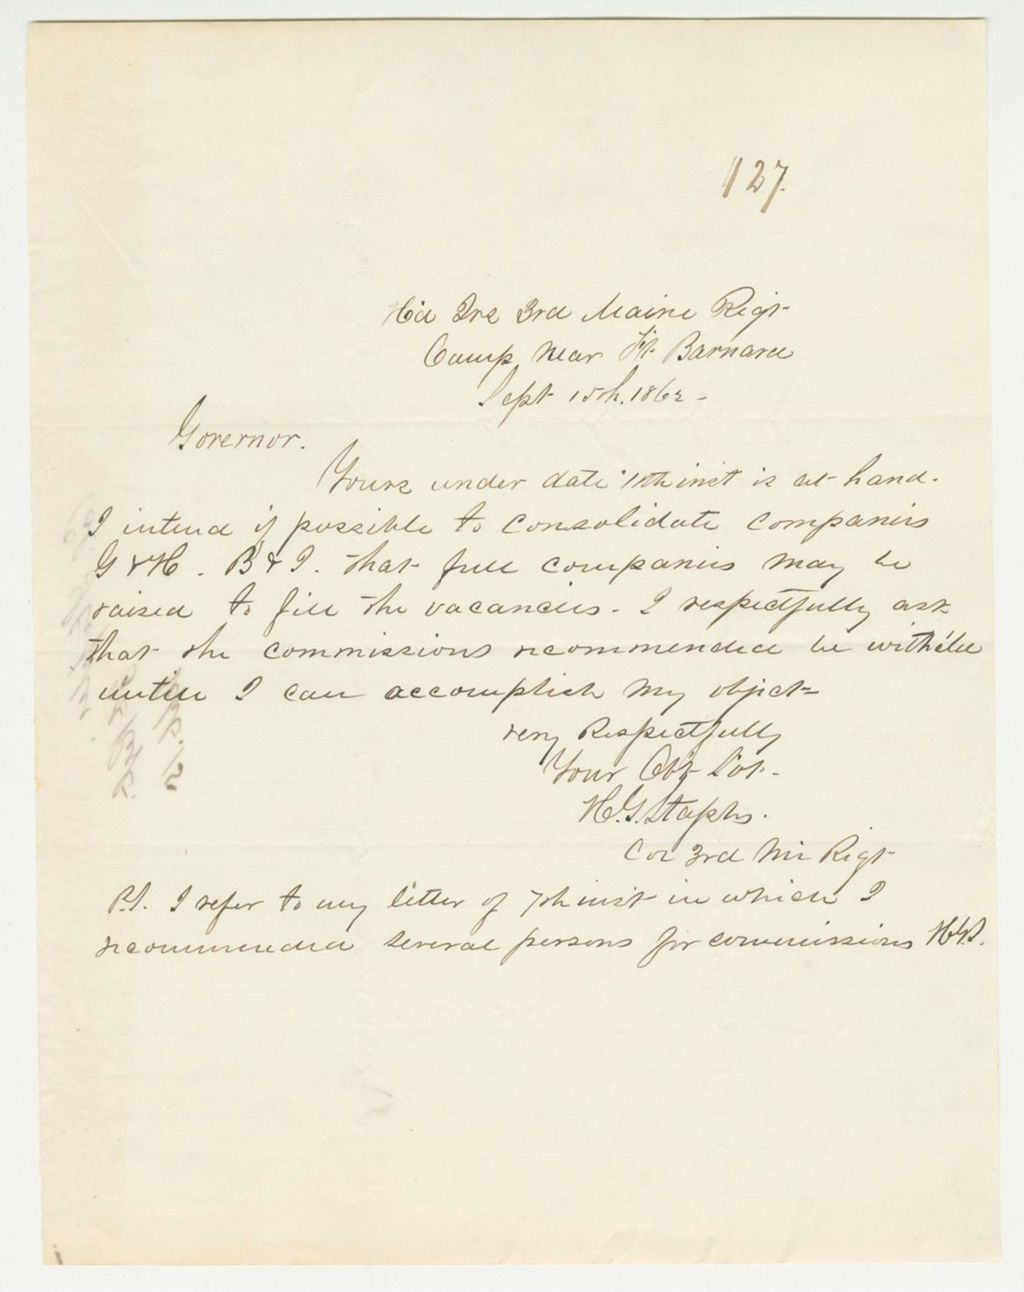 127.
Hd Qrs 3rd Maine Regt
Camp Near Ft Barnard
Sept 15th. 1862 -
Governor.
Yours under date inst is at hand.
I intend if possible to consolidate companies
G & H. B & I. that full companies may be
raised to fill the vacancies - I respectfully ask
that the commissions recommended be witheld
until I can accomplish my object
very Respectfully
Your Obt Svt.
H.G. Staples.
Col 3rd Me Regt
P.S. I refer to my letter of 7th inst in which I
recommended several persons for commissions HGS.